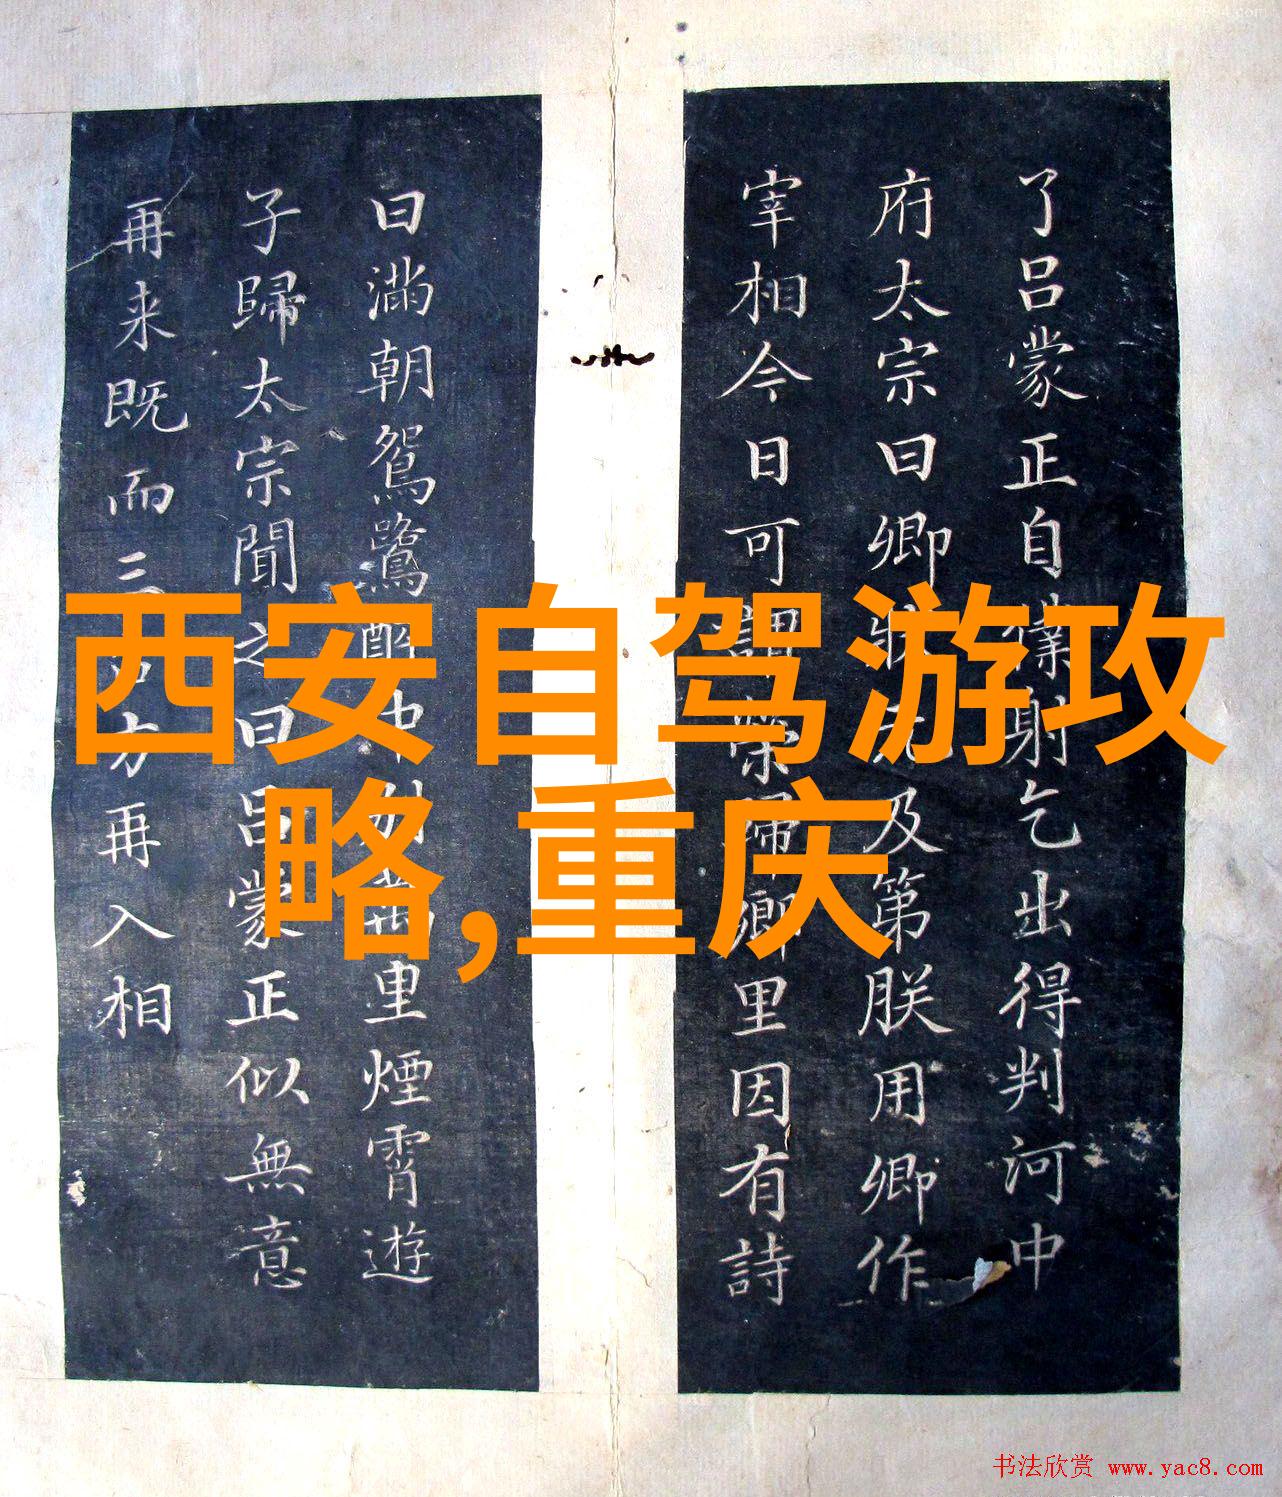 西安自驾游攻
略,重庆
了吕蒙正自僕射乞出得判河中
府太宗曰卿狀元及第朕用卿作
宰相今日可謂榮歸鄉里因有詩
曰滿朝鴛鷺醉中別萬里煙霄遊
子歸太宗聞之曰吕蒙正似無意
再来既而三方再入相
书法欣赏 www.yac8.com